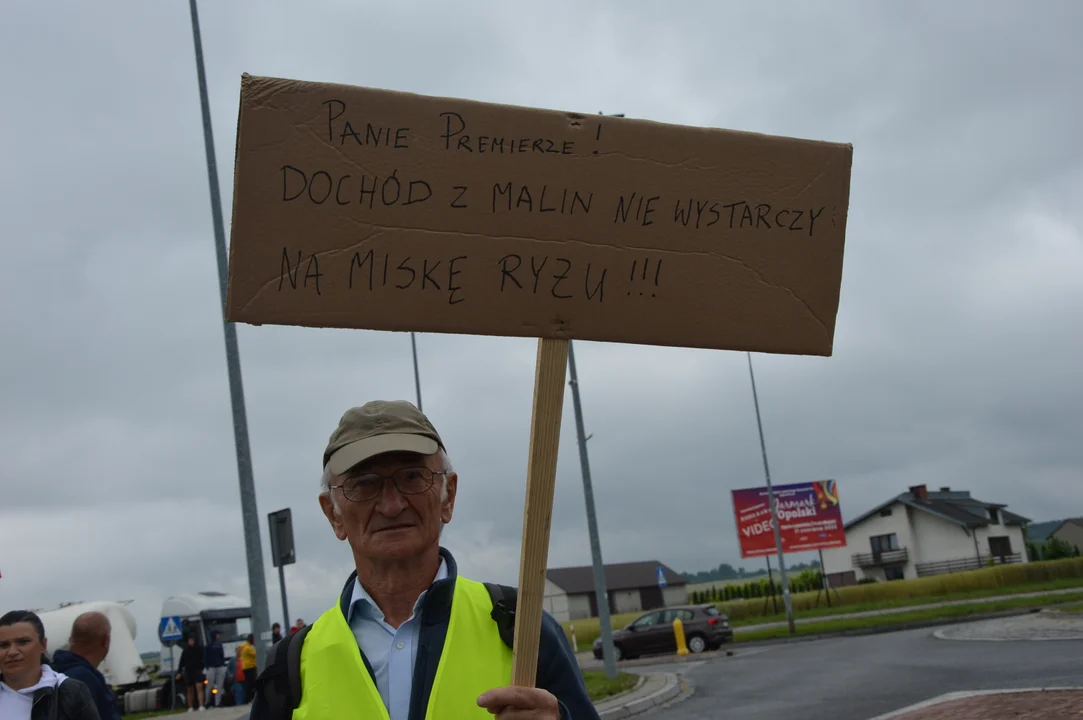 PANIE PREMIERZE !
DOCHÓD Z MALIN NIE WYSTARCZY
NA MISKĘ RYZU !!!
Jarmark
Opolski
VIDEO